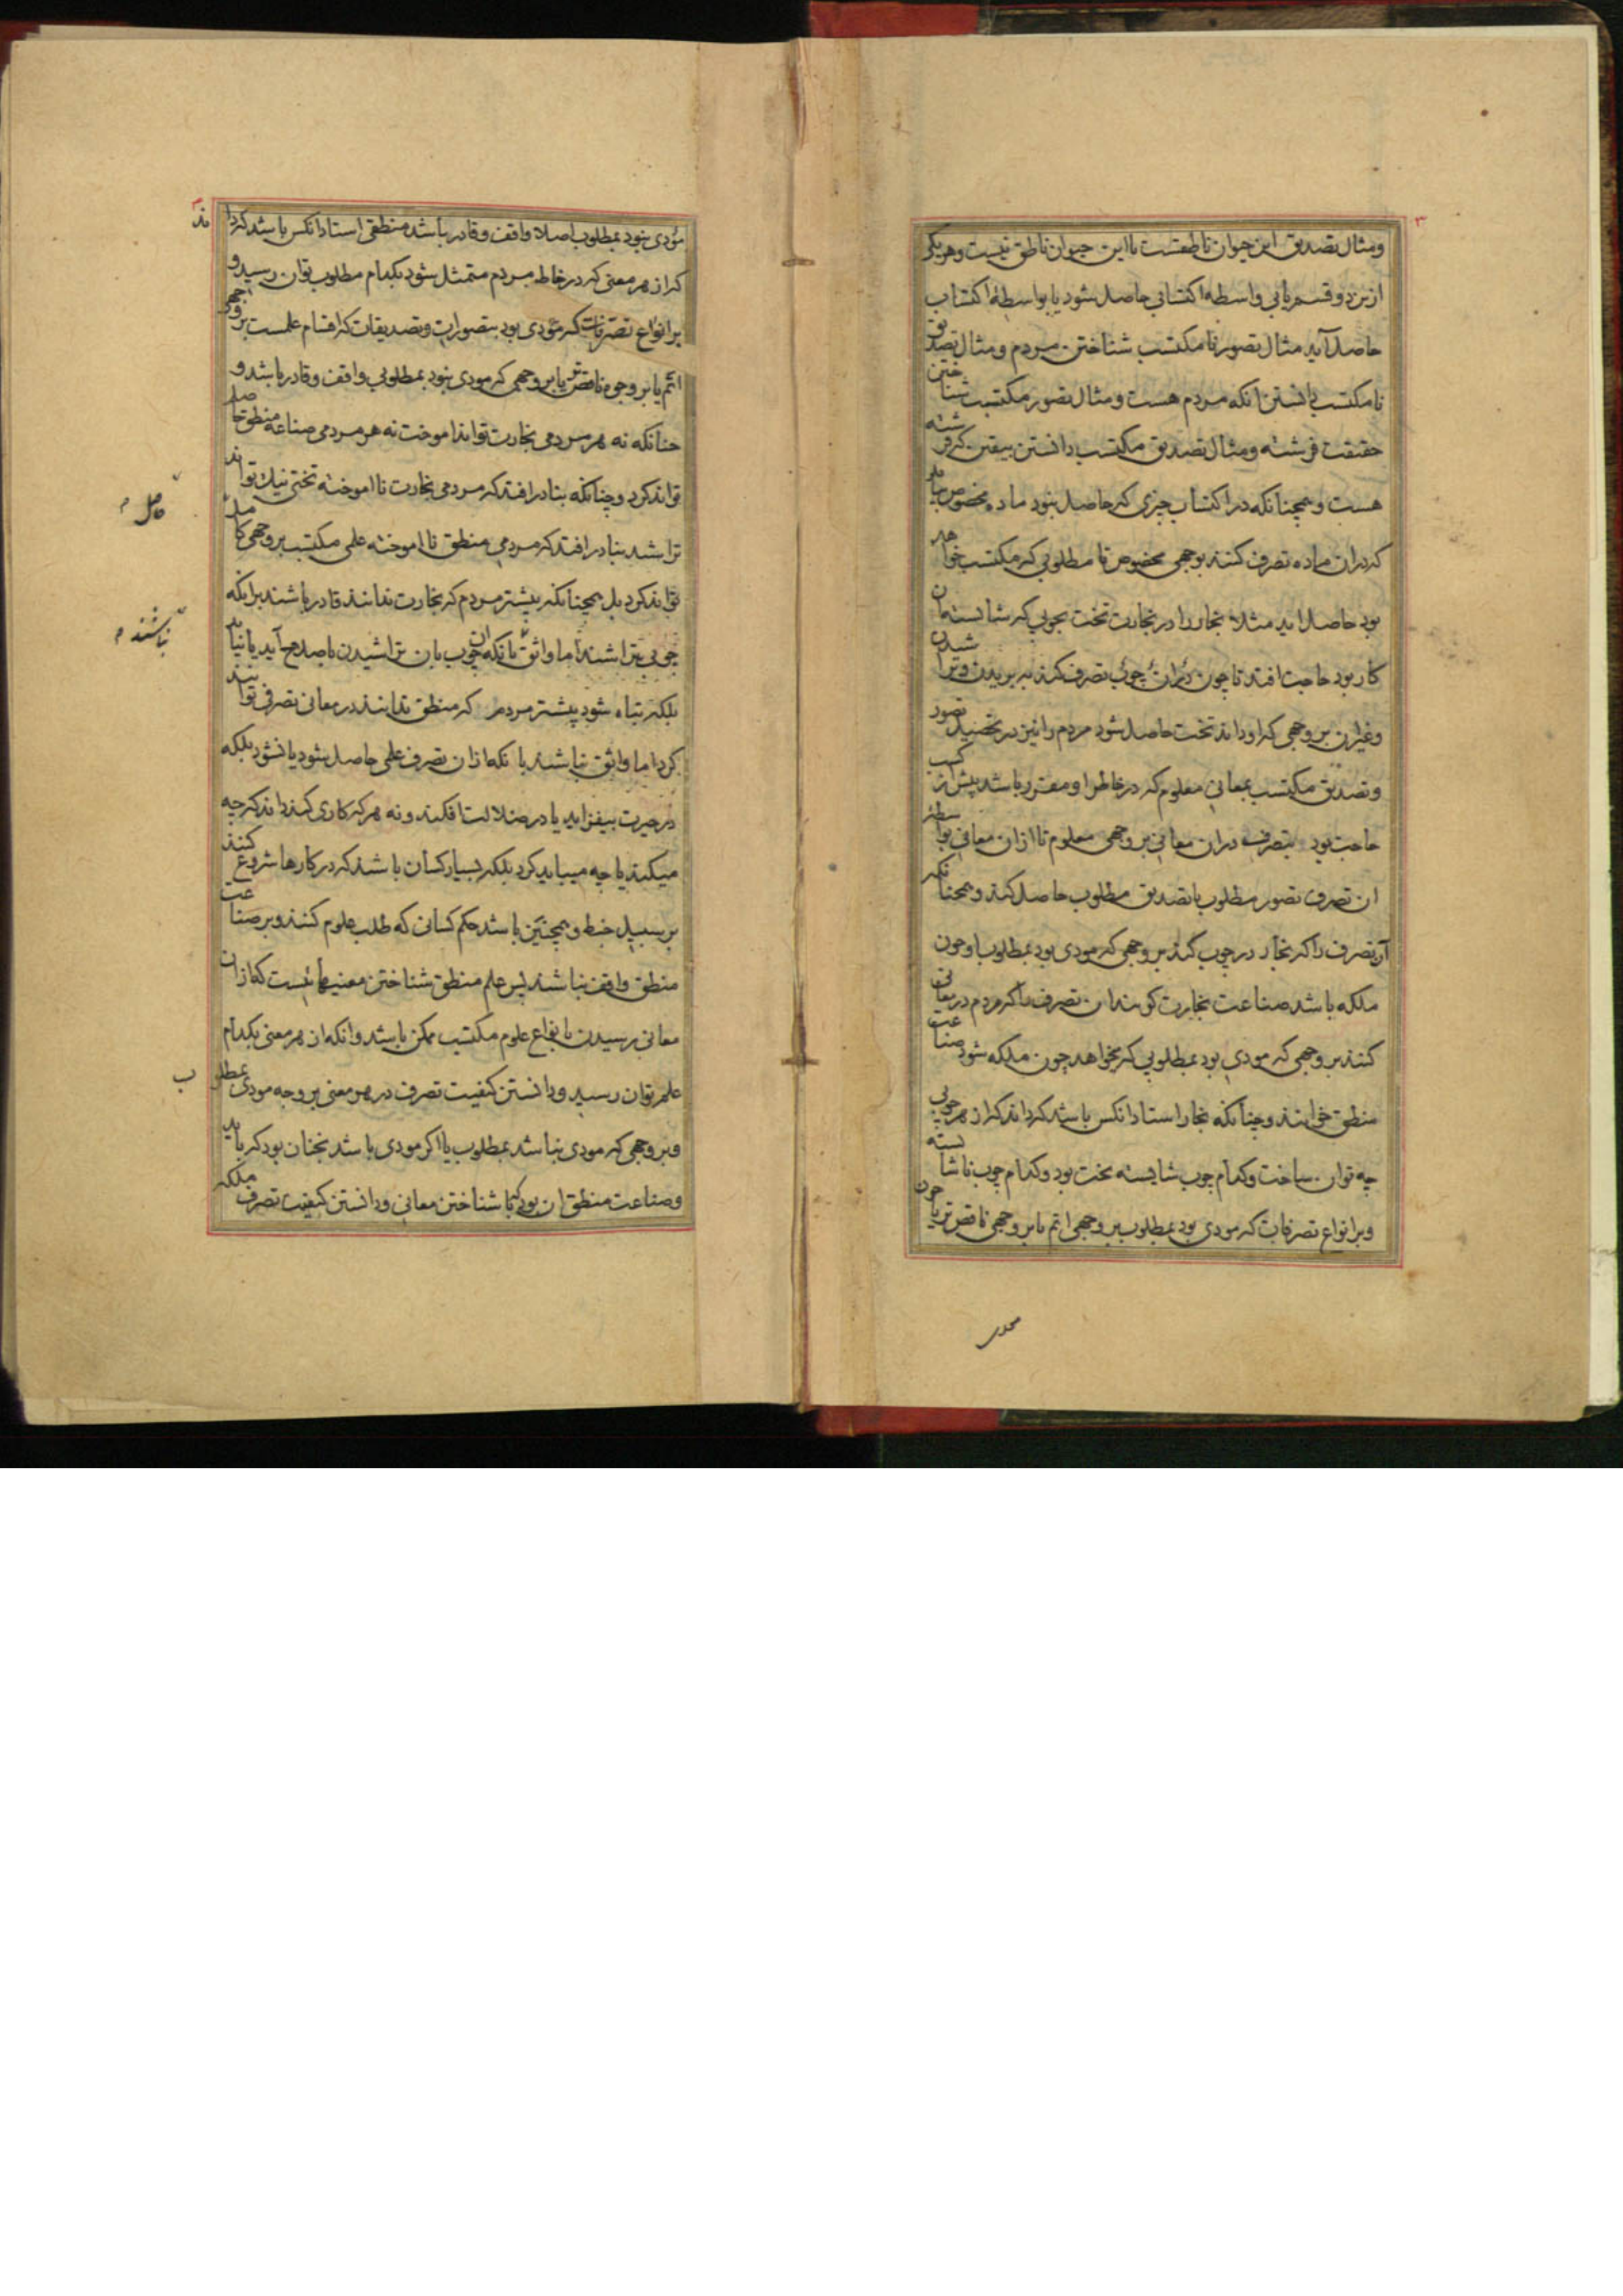 ومثال تصدیق این حیوان ناطقست یا این حیوان ناطق نیست وهریکی
ازین دو قسم یا بی واسطه اکتسابی حاصل شود یا بواسطهٔ اکتساب
حاصل آید مثال تصور نامکتسب شناختن مردم ومثال تصدیق
نامکتسب دانستن آنکه مردم هست ومثال تصور مکتسب شناختن
حقیقت فرشته ومثال تصدیق مکتسب دانستن بیقین که فرشته
هست وهمچنانکه در اکتساب چیزی که حاصل نبود ماده مخصوص بباید
که دران ماده تصرف کنند بوجهی مخصوص تا مطلوبی که مکتسب خواهد
بود حاصل اید مثلا نجار را در نجارت تخت بچوبی که شایسته آن
کار بود حاجت افتد تا چون دران چوب تصرف کند به بریدن وتراشیدن
وغیران بر وجهی که او داند تخت حاصل شود مردم را نیز در تحصیل تصور
وتصدیق مکتسب بمعانی معلوم که در خاطر او مقرر باشد پیش از کسب
حاجت بود بتصرف دران معانی بر وجهی معلوم تا ازان معانی بواسطهٔ
ان تصرف تصور مطلوب یا تصدیق مطلوب حاصل کند وهمچنانکه
آن تصرف را که نجار در چوب کند بر وجهی که مودی بود بمطلوب او چون
ملکه باشد صناعت نجارت کویند ان تصرف را که مردم در معانی
کنند بر وجهی که مودی بود بمطلوبی که بخواهد چون ملکه شود صناعت
منطق خوانند وچنانکه نجار استاد انکس باشد که داند که از هر چوبی
چه توان ساخت وکدام چوب شایسته تخت بود وکدام چوب ناشایسته
وبر انواع تصرفات که مودی بود بمطلوب بر وجهی اتم یا بر وجهی ناقص تر یا چون
مودی نبود بمطلوب اصلا واقف وقادر باشد منطقی استاد انکس باشد که داند
که از هر معنی که در خاطر مردم متمثل شود بکدام مطلوب توان رسید و
بر انواع تصرفات که مؤدی بود بتصورات وتصدیقات که اقسام علمست بر وجهی
اتم یا بر وجوه ناقص تر یا بر وجهی که مودی نبود بمطلوبی واقف وقادر باشد و
چنانکه نه هر مردمی نجارت تواند اموخت نه هر مردمی صناعة منطق حاصل
تواند کرد وچنانکه بنادر افتد که مردمی نجارت نااموخته تختی نیک تواند
تراشید بنادر افتد که مردمی منطق نااموخته علمی مکتسب بر وجهی کامل
تواند کرد بل همچنانکه بیشتر مردم که نجارت ندانند قادر باشند برانکه
چوبی بتراشند اما واثق بانکه ان چوب بان تراشیدن باصلاح آید یا نیاید
بلکه تباه شود بیشتر مردم که منطق ندانند در معانی تصرفی توانند
کرد اما واثق نباشند بانکه ازان تصرف علمی حاصل شود یا نشود بلکه
در حیرت بیفزاید یا در ضلالت افکند ونه هر که کاری کند داند که چه
میکند یا چه میباید کرد بلکه بسیار کسان باشند که در کارها شروع کنند
بر سبیل خبط وهمچنین باشد حکم کسانی که طلب علوم کنند وبر صناعت
منطق واقف نباشند پس علم منطق شناختن معنیهائیست که ازان
معانی رسیدن بانواع علوم مکتسب ممکن باشد وانکه از هر معنی بکدام
علم توان رسید ودانستن کیفیت تصرف در هر معنی بر وجه مودی بمطلوب
وبر وجهی که مودی نباشد بمطلوب یا اکر مودی باشد نچنان بود که باید
وصناعت منطق ان بود که با شناختن معانی ودانستن کیفیت تصرف ملکه
نباشند